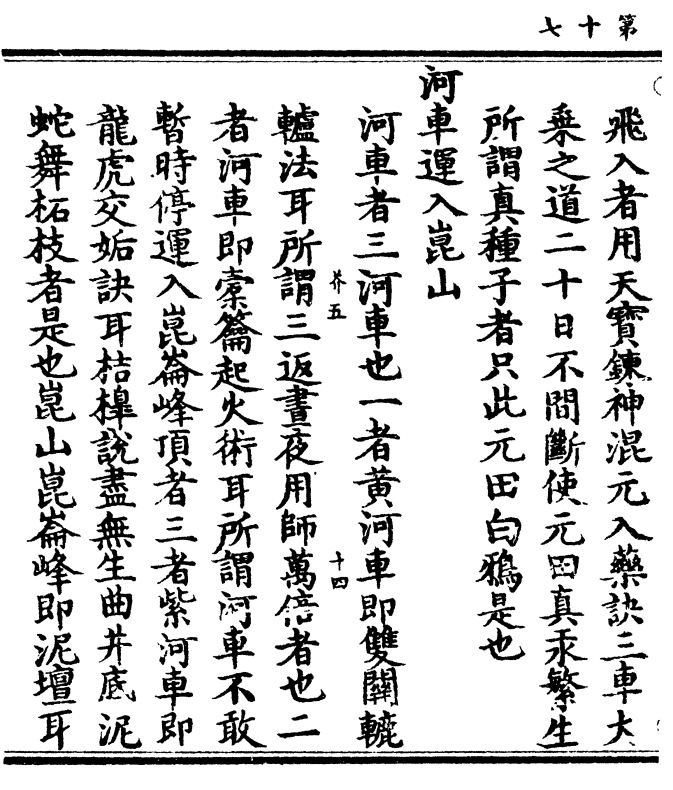 第十七
飛入者用天寶鍊神混元入藥訣三車大
乗之道二十日不間斷使元田真汞繁生
所謂真種子者只此元田白鴉是也
河車運入崑山
河車者三河車也一者黄河車即雙關轆
轤法耳所謂三返晝夜用師萬倍者也二
芥五
十四
者河車即槖籥起火術耳所謂河車不敢
暫時停運入崑崙峰頂者三者紫河車即
龍虎交姤訣耳桔槹說盡無生曲井底泥
蛇舞柘枝者是也崑山崑崙峰即泥壇耳